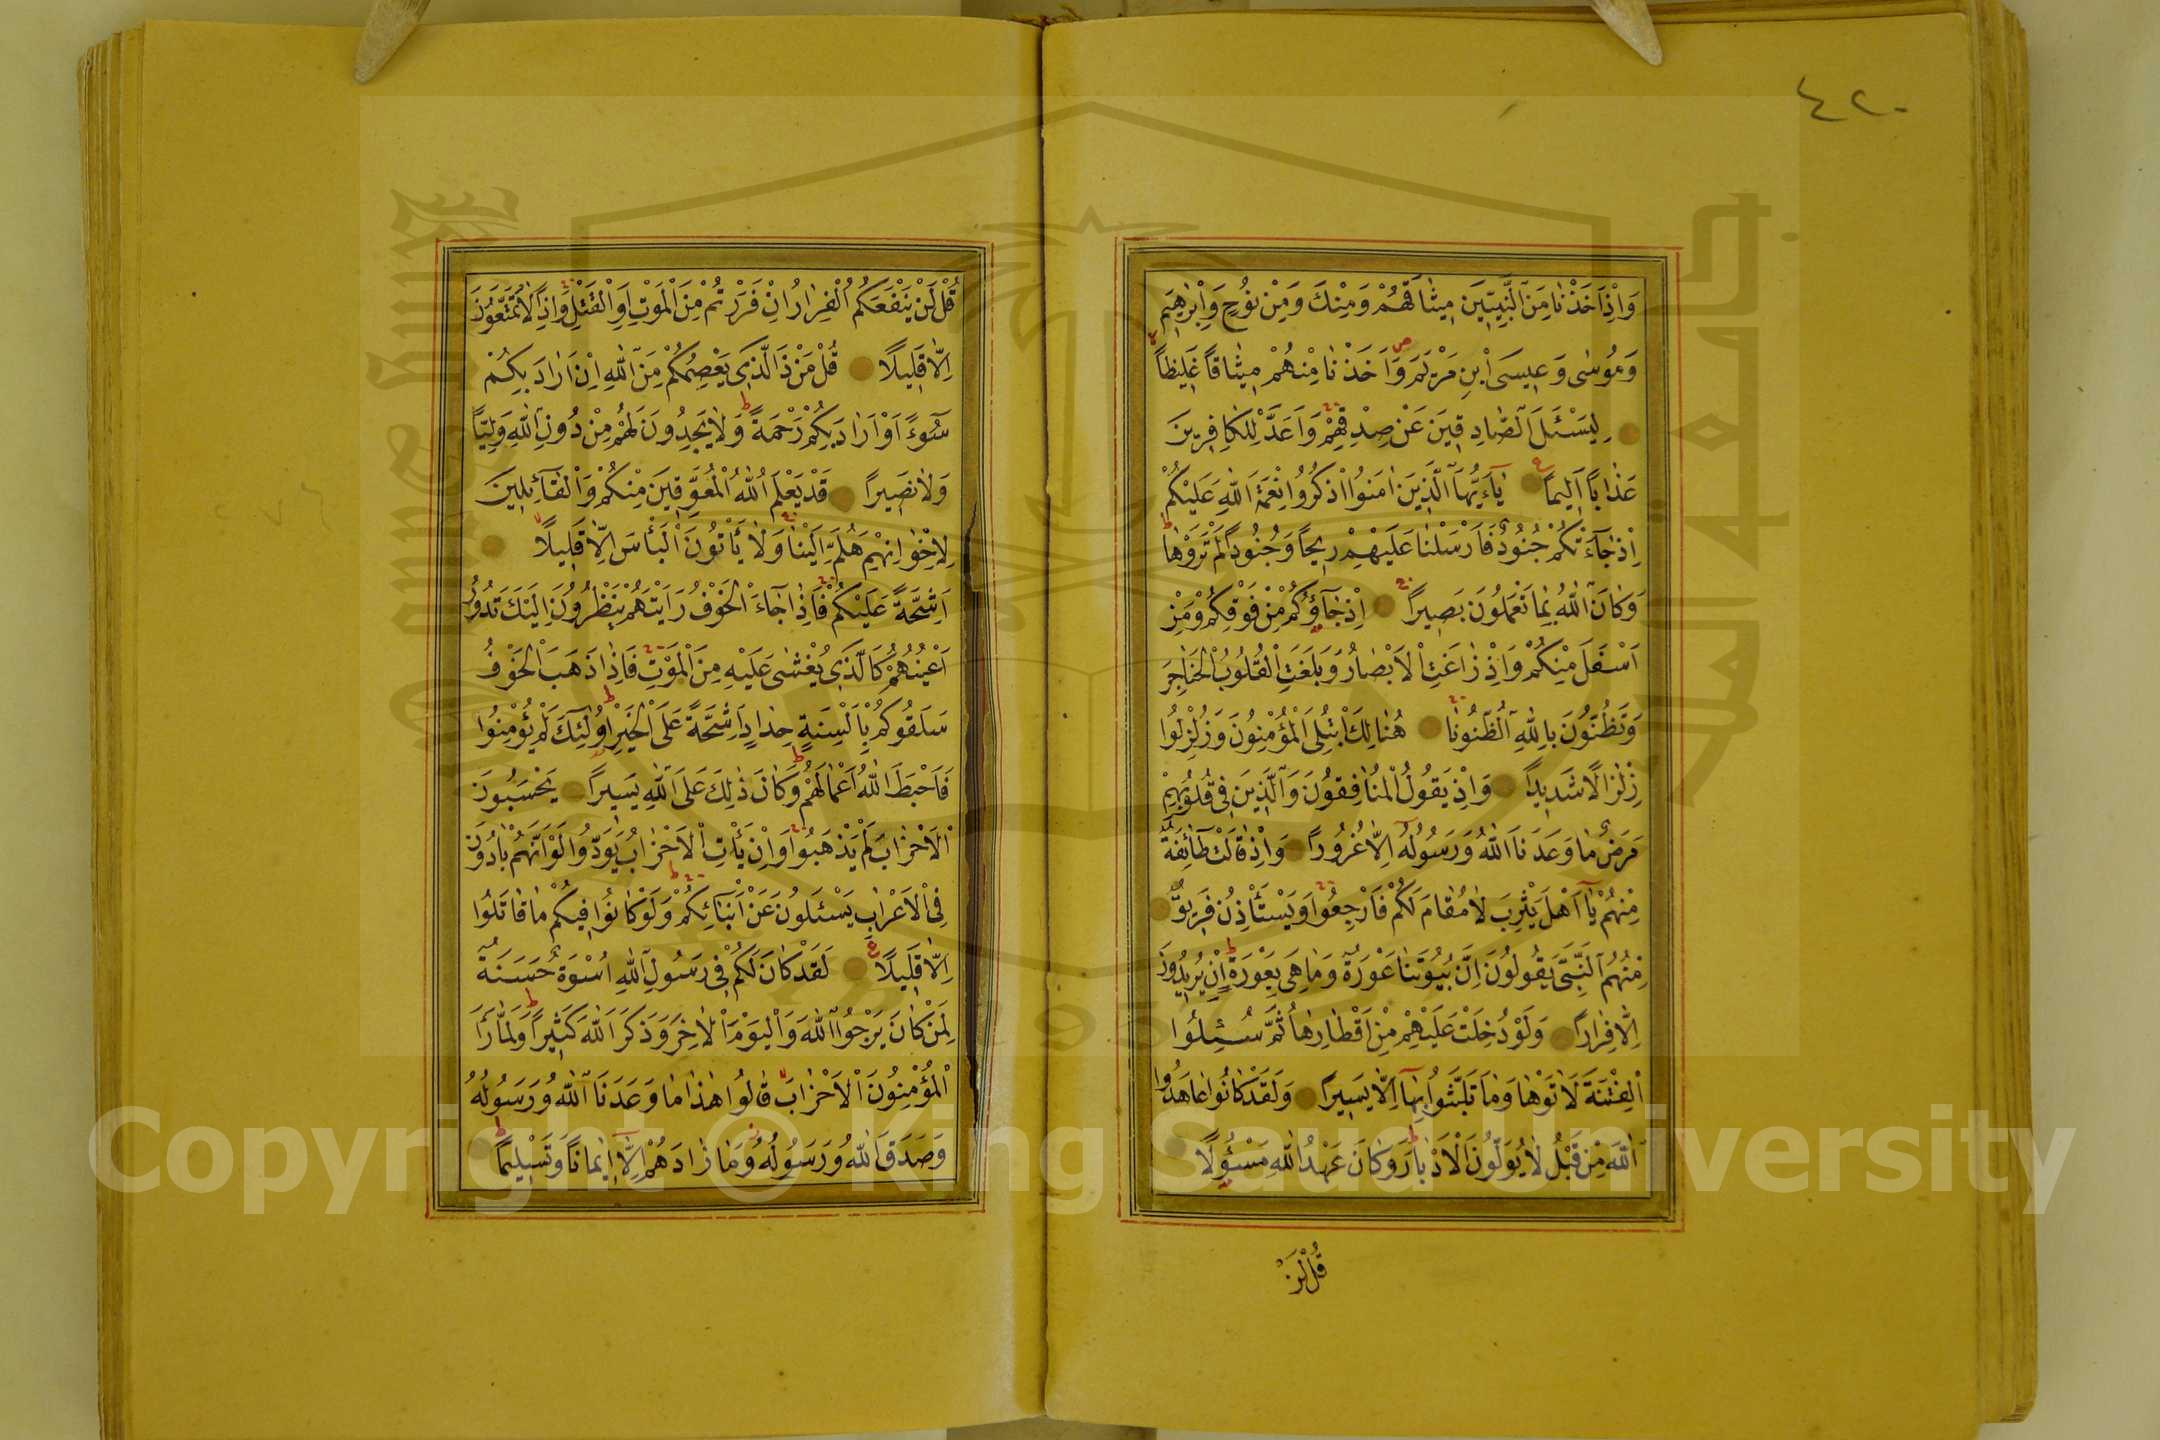 ٤٢٠
وَاِذْ اَخَذْنَا مِنَ النَّبِيّٖنَ مِيثَاقَهُمْ وَمِنْكَ وَمِنْ نُوحٍ وَاِبْرٰهِيمَ
وَمُوسٰى وَعِيسَى ابْنِ مَرْيَمَ وَاَخَذْنَا مِنْهُمْ مِيثَاقًا غَلِيظًا
لِيَسْـَٔلَ الصَّادِقِينَ عَنْ صِدْقِهِمْ وَاَعَدَّ لِلْكَافِرِينَ
عَذَابًا اَلِيمًا يَآ اَيُّهَا الَّذِينَ اٰمَنُوا اذْكُرُوا نِعْمَةَ اللّٰهِ عَلَيْكُمْ
اِذْ جَآءَتْكُمْ جُنُودٌ فَاَرْسَلْنَا عَلَيْهِمْ رِيحًا وَجُنُودًا لَمْ تَرَوْهَا
وَكَانَ اللّٰهُ بِمَا تَعْمَلُونَ بَصِيرًا اِذْ جَآؤُكُمْ مِنْ فَوْقِكُمْ وَمِنْ
اَسْفَلَ مِنْكُمْ وَاِذْ زَاغَتِ الْاَبْصَارُ وَبَلَغَتِ الْقُلُوبُ الْحَنَاجِرَ
وَتَظُنُّونَ بِاللّٰهِ الظُّنُونَا هُنَالِكَ ابْتُلِيَ الْمُؤْمِنُونَ وَزُلْزِلُوا
زِلْزَالًا شَدِيدًا وَاِذْ يَقُولُ الْمُنَافِقُونَ وَالَّذِينَ فِي قُلُوبِهِمْ
مَرَضٌ مَا وَعَدَنَا اللّٰهُ وَرَسُولُهُ اِلَّا غُرُورًا وَاِذْ قَالَتْ طَآئِفَةٌ
مِنْهُمْ يَآ اَهْلَ يَثْرِبَ لَا مُقَامَ لَكُمْ فَارْجِعُوا وَيَسْتَأْذِنُ فَرِيقٌ
مِنْهُمُ النَّبِيَّ يَقُولُونَ اِنَّ بُيُوتَنَا عَوْرَةٌ وَمَا هِيَ بِعَوْرَةٍ اِنْ يُرِيدُونَ
اِلَّا فِرَارًا وَلَوْ دُخِلَتْ عَلَيْهِمْ مِنْ اَقْطَارِهَا ثُمَّ سُئِلُوا
الْفِتْنَةَ لَاٰتَوْهَا وَمَا تَلَبَّثُوا بِهَآ اِلَّا يَسِيرًا وَلَقَدْ كَانُوا عَاهَدُوا
اللّٰهَ مِنْ قَبْلُ لَا يُوَلُّونَ الْاَدْبَارَ وَكَانَ عَهْدُ اللّٰهِ مَسْؤُلًا
قُلْ لَنْ
قُلْ لَنْ يَنْفَعَكُمُ الْفِرَارُ اِنْ فَرَرْتُمْ مِنَ الْمَوْتِ اَوِ الْقَتْلِ وَاِذًا لَا تُمَتَّعُونَ
اِلَّا قَلِيلًا قُلْ مَنْ ذَا الَّذِي يَعْصِمُكُمْ مِنَ اللّٰهِ اِنْ اَرَادَ بِكُمْ
سُوٓءًا اَوْ اَرَادَ بِكُمْ رَحْمَةً وَلَا يَجِدُونَ لَهُمْ مِنْ دُونِ اللّٰهِ وَلِيًّا
وَلَا نَصِيرًا قَدْ يَعْلَمُ اللّٰهُ الْمُعَوِّقِينَ مِنْكُمْ وَالْقَآئِلِينَ
لِاِخْوَانِهِمْ هَلُمَّ اِلَيْنَا وَلَا يَأْتُونَ الْبَأْسَ اِلَّا قَلِيلًا
اَشِحَّةً عَلَيْكُمْ فَاِذَا جَآءَ الْخَوْفُ رَاَيْتَهُمْ يَنْظُرُونَ اِلَيْكَ تَدُورُ
اَعْيُنُهُمْ كَالَّذِي يُغْشٰى عَلَيْهِ مِنَ الْمَوْتِ فَاِذَا ذَهَبَ الْخَوْفُ
سَلَقُوكُمْ بِاَلْسِنَةٍ حِدَادٍ اَشِحَّةً عَلَى الْخَيْرِ اُولٰٓئِكَ لَمْ يُؤْمِنُوا
فَاَحْبَطَ اللّٰهُ اَعْمَالَهُمْ وَكَانَ ذٰلِكَ عَلَى اللّٰهِ يَسِيرًا يَحْسَبُونَ
الْاَحْزَابَ لَمْ يَذْهَبُوا وَاِنْ يَأْتِ الْاَحْزَابُ يَوَدُّوا لَوْ اَنَّهُمْ بَادُونَ
فِي الْاَعْرَابِ يَسْـَٔلُونَ عَنْ اَنْبَآئِكُمْ وَلَوْ كَانُوا فِيكُمْ مَا قَاتَلُوا
اِلَّا قَلِيلًا لَقَدْ كَانَ لَكُمْ فِي رَسُولِ اللّٰهِ اُسْوَةٌ حَسَنَةٌ
لِمَنْ كَانَ يَرْجُوا اللّٰهَ وَالْيَوْمَ الْاٰخِرَ وَذَكَرَ اللّٰهَ كَثِيرًا وَلَمَّا رَاَ
الْمُؤْمِنُونَ الْاَحْزَابَ قَالُوا هٰذَا مَا وَعَدَنَا اللّٰهُ وَرَسُولُهُ
وَصَدَقَ اللّٰهُ وَرَسُولُهُ وَمَا زَادَهُمْ اِلَّآ اِيمَانًا وَتَسْلِيمًا
Copyright © King Saud University